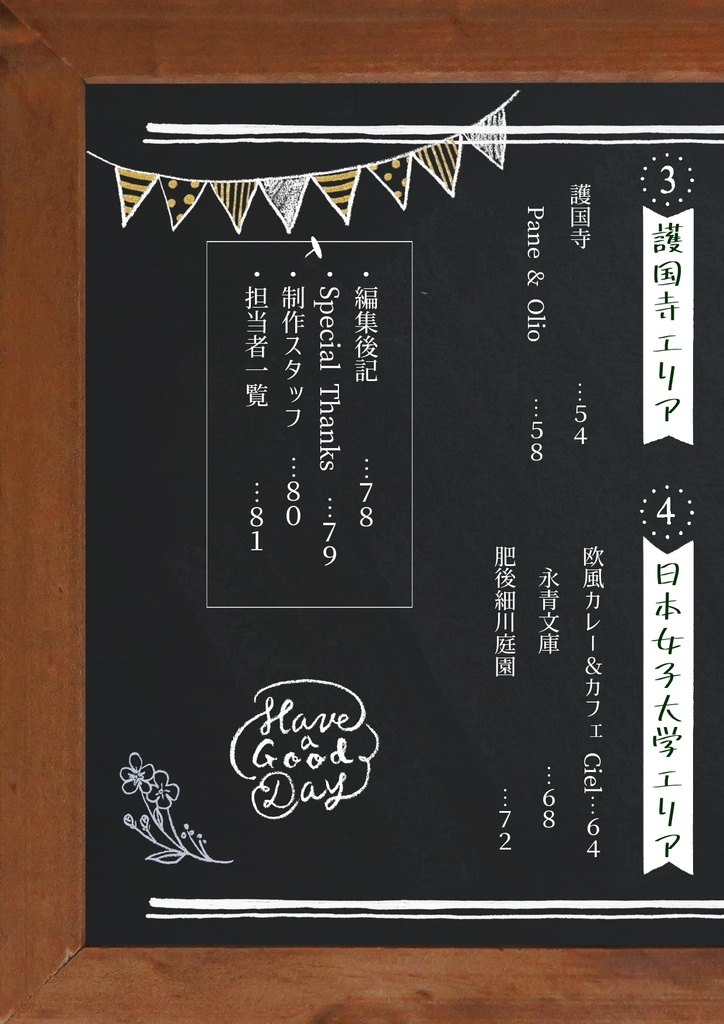 3
護国寺エリア
護国寺 …54
Pane & Olio …58
4
日本女子大学エリア
欧風カレー&カフェ Ciel…64
永青文庫 …68
肥後細川庭園 …72
・編集後記 …78
・Special Thanks …79
・制作スタッフ …80
・担当者一覧 …81
Have
a
Good
Day